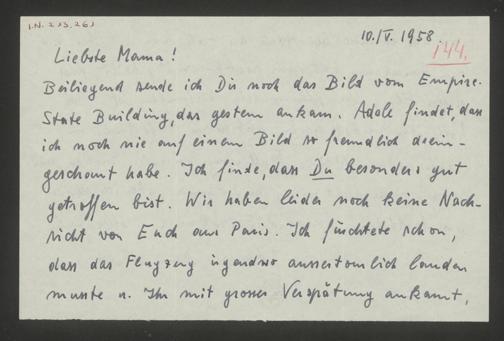 I.N. 213.261
10./V. 1958.
144.
Liebste Mama!
Beiliegend sende ich Dir noch das Bild vom Empire-
State Building, das gestern ankam. Adele findet, dass
ich noch nie auf einem Bild so freundlich drein-
geschaut habe. Ich finde, dass Du besonders gut
getroffen bist. Wir haben leider noch keine Nach-
richt von Euch aus Paris. Ich fürchtete schon,
dass das Flugzeug irgendwo ausser landen
musste u. Ihr mit grosser Verspätung ankamt,